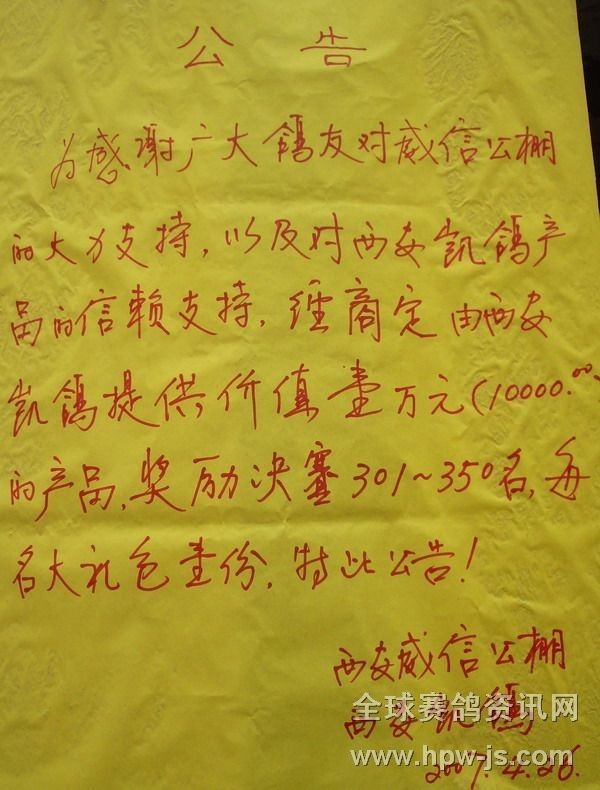 公告
为感谢广大鸽友对威信公棚
的大力支持，以及对西安凯鸽产
品的信赖支持，经商定由西安
凯鸽提供价值壹万元(10000.00
的产品，奖励决赛301~350名，每
名大礼包壹份，特此公告！
西安威信公棚
西安凯鸽
2007.4.26.
全球赛鸽资讯网
www.hpw-js.com